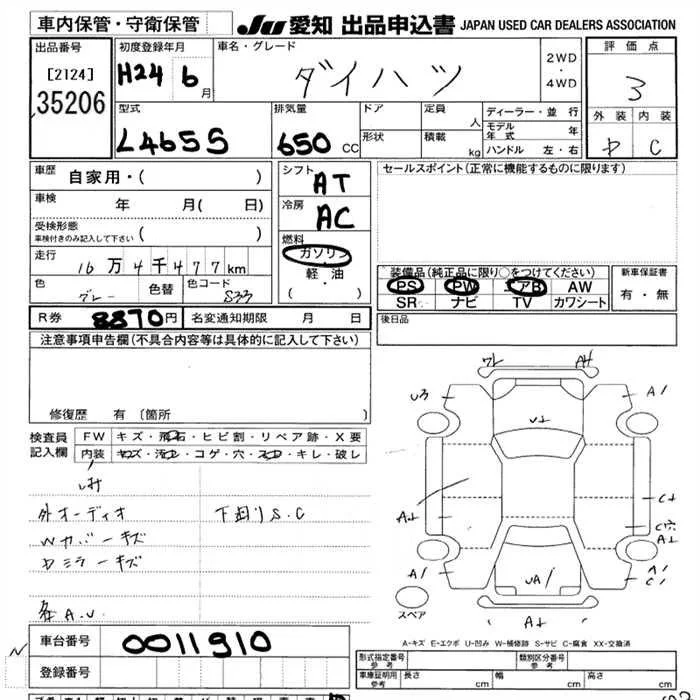 車内保管・守衛保管
JU 愛知 出品申込書 JAPAN USED CAR DEALERS ASSOCIATION
出品番号
[2124]
35206
初度登録年月
H24 6月
車名・グレード
ダイハツ
2WD・4WD
評価点
3
外装 内装
C
型式
L465S
排気量
650 CC
ドア
形状
定員 人
積載 kg
ディーラー・並行
モデル年式 年
ハンドル 左・右
車歴 自家用・( )
車検 年 月( 日)
受検形態
車検付きのみ記入して下さい ( )
走行 16万4千477km
色 グレー 色替 色コード S33
シフト
AT
冷房
AC
燃料
ガソリン
軽・油
( ・ )
セールスポイント(正常に機能するものに限ります)
装備品(純正品に限り○をつけてください)
PS PW エアB AW
SR ナビ TV カワシート
新車保証書
有・無
R券 8870円 名変通知期限 月 日
後日品
注意事項申告欄(不具合内容等は具体的に記入して下さい)
修復歴 有〔箇所 〕
検査員記入欄
FW キズ・飛石・ヒビ割・リペア跡・X要
内装 キズ・汚レ・コゲ・穴・スレ・キレ・破レ
外オーディオ
下廻りS.C
Wカバーキズ
各A.U
ワレ A4
U3 A1
A1 C1
UA1
A1
スペア
A-キズ E-エクボ U-凹み W-補修跡 S-サビ C-腐食 XX-交換済
車台番号 0011910
登録番号
形式指定番号 参考
類別区分番号 参考
車庫証明用 参考 長さ cm 幅 cm 高さ cm